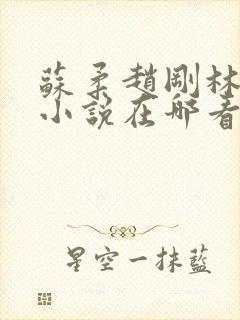 蘇柔趙剛林
小說在哪看
星空一抹藍